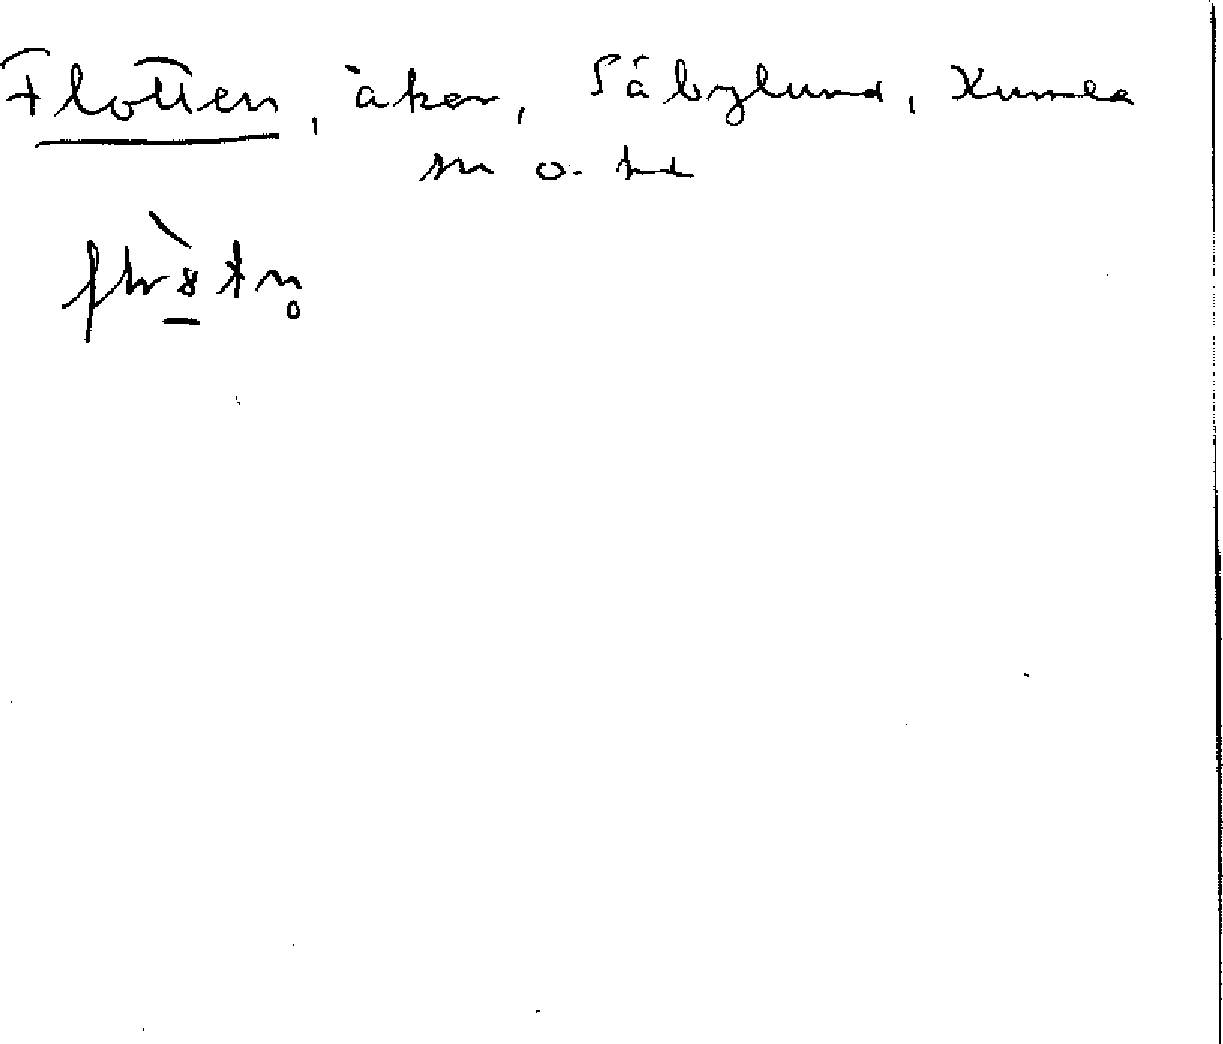 Flotten, åker, Såbylund, Kumla
sn o. hd